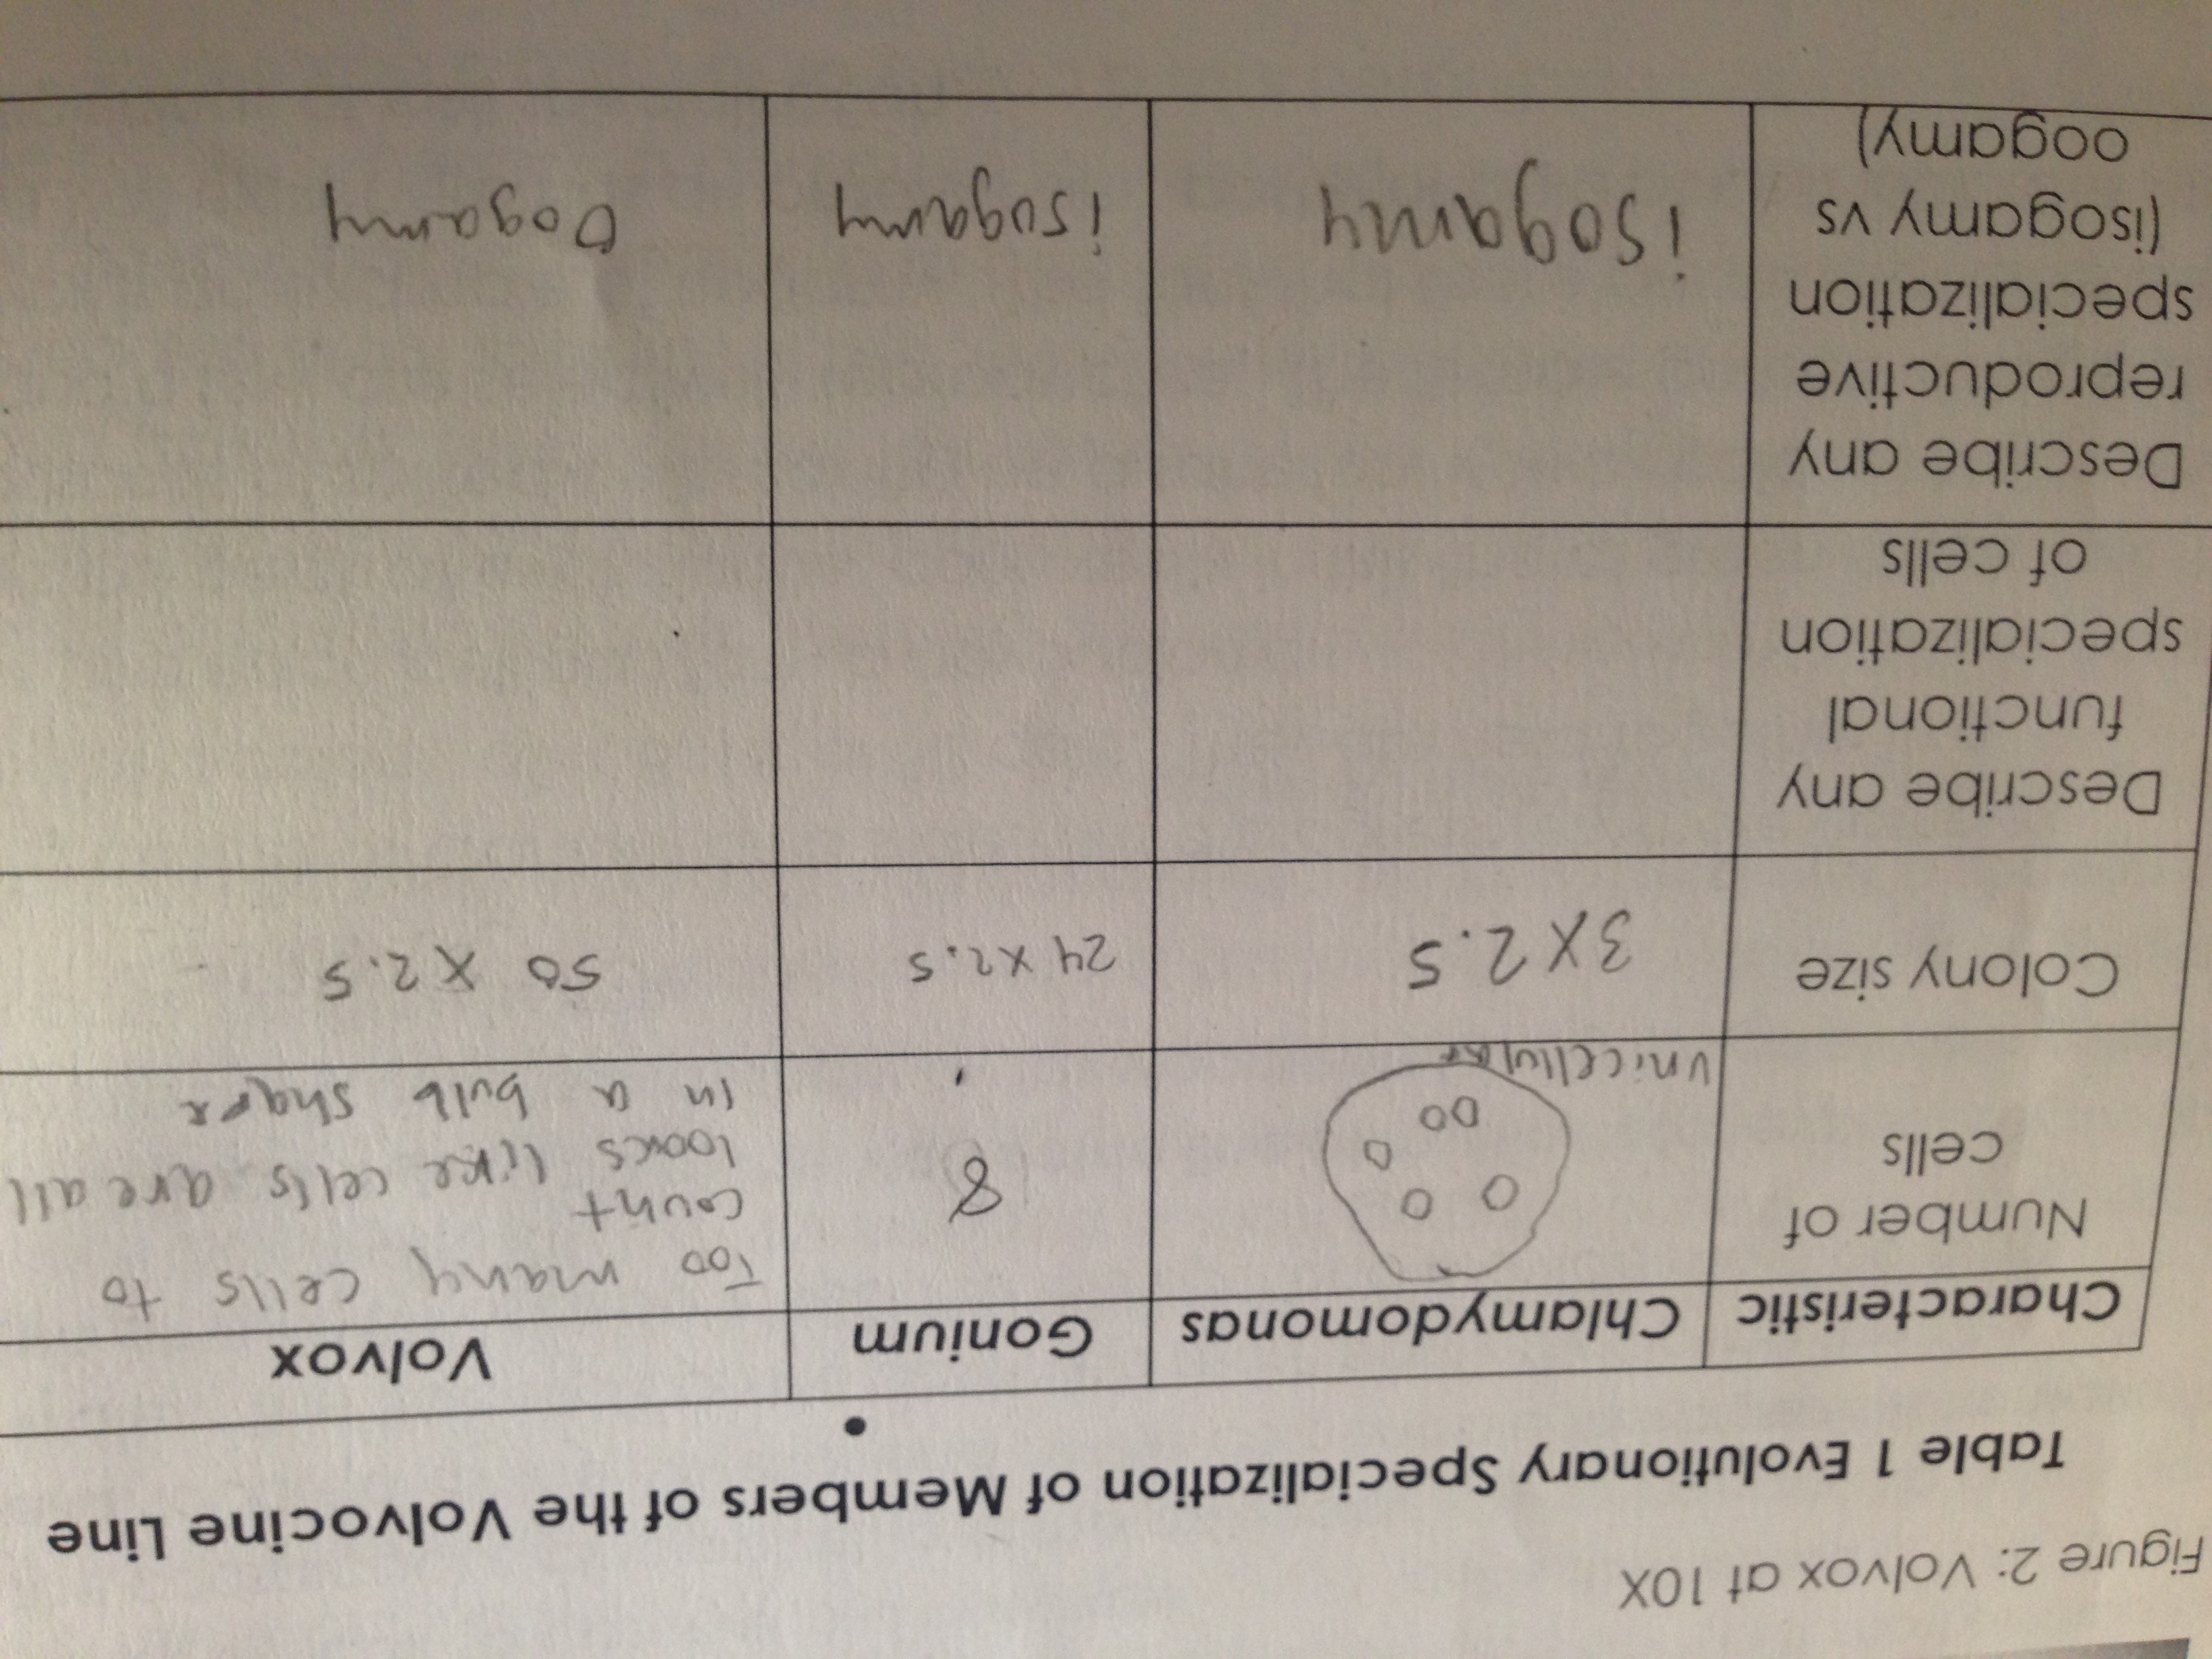 Figure 2: Volvox at 10X
Table 1 Evolutionary Specialization of Members of the Volvocine Line
Characteristic
Chlamydomonas
Gonium
Volvox
Number of
cells
unicellular
8
Too many cells to
count
looks like cells are all
in a bulb shape
Colony size
3 X 2.5
24 X 2.5
50 X 2.5
Describe any
functional
specialization
of cells
Describe any
reproductive
specialization
(isogamy vs
oogamy)
isogamy
isogamy
oogamy